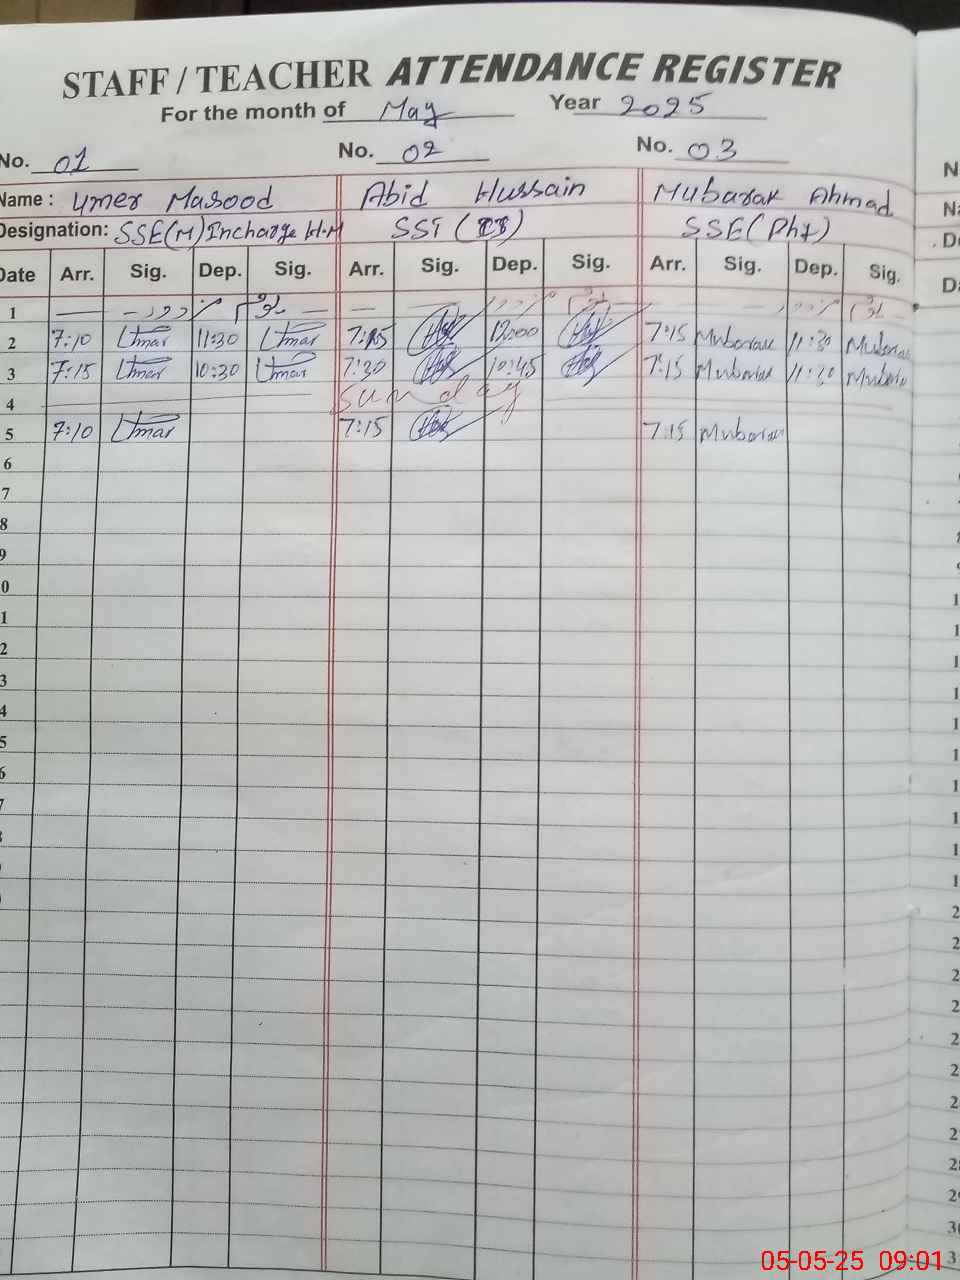 STAFF / TEACHER ATTENDANCE REGISTER
For the month of May Year 2025
No. 01 No. 02 No. 03
Name : Umer Masood Abid Hussain Mubarak Ahmad
Designation: SSE(M) Incharge H.M SST ( ) SSE(Phy)
Date Arr. Sig. Dep. Sig. Arr. Sig. Dep. Sig. Arr. Sig. Dep. Sig.
1
2 7:10 Umar 11:30 Umar 7:15 12:00 7:15 Mubarak 11:30 Mubarak
3 7:15 Umar 10:30 Umar 7:30 10:45 7:15 Mubarak 11:30 Mubarak
4 Sunday
5 7:10 Umar 7:15 7:15 Mubarak
6
7
8
9
0
1
2
3
4
5
6
7
05-05-25 09:01